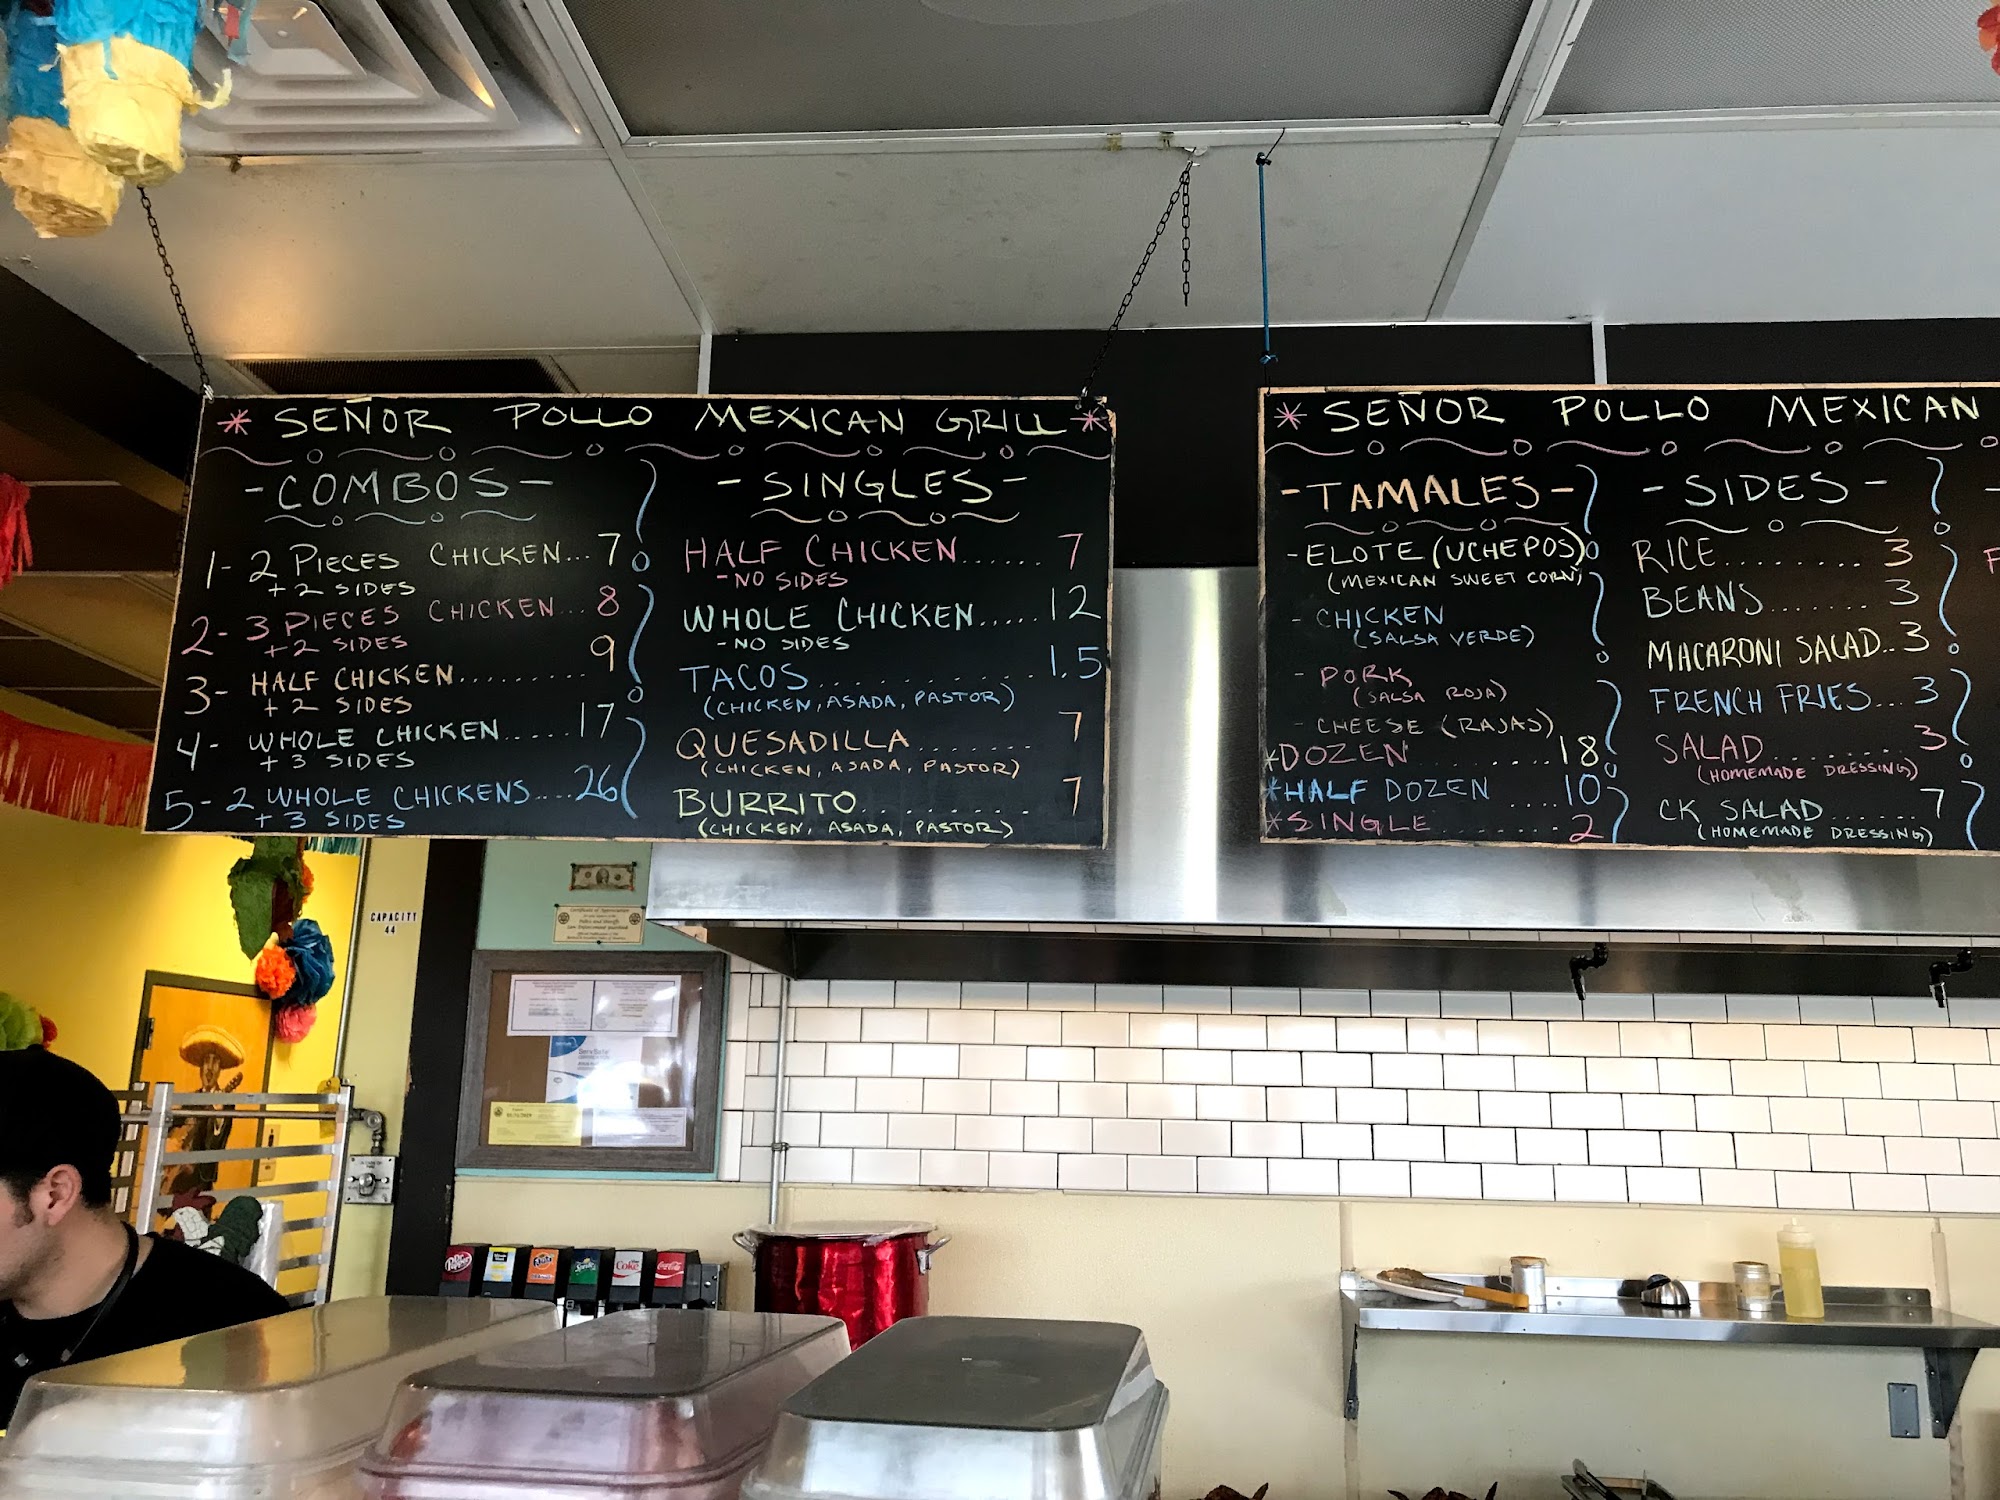 * SEÑOR POLLO MEXICAN GRILL *
- COMBOS -
1- 2 PIECES CHICKEN...7
+ 2 SIDES
2- 3 PIECES CHICKEN...8
+ 2 SIDES
3- HALF CHICKEN.........9
+ 2 SIDES
4- WHOLE CHICKEN.....17
+ 3 SIDES
5- 2 WHOLE CHICKENS....26
+ 3 SIDES
- SINGLES -
HALF CHICKEN......7
-NO SIDES
WHOLE CHICKEN.....12
-NO SIDES
TACOS...............1.5
(CHICKEN, ASADA, PASTOR)
QUESADILLA........7
(CHICKEN, ASADA, PASTOR)
BURRITO..........7
(CHICKEN, ASADA, PASTOR)
* SEÑOR POLLO MEXICAN
- TAMALES -
- ELOTE (UCHEPOS)
(MEXICAN SWEET CORN)
- CHICKEN
(SALSA VERDE)
- PORK
(SALSA ROJA)
- CHEESE (RAJAS)
*DOZEN.........18
*HALF DOZEN ....10
*SINGLE........2
- SIDES -
RICE.........3
BEANS.......3
MACARONI SALAD..3
FRENCH FRIES...3
SALAD.........3
(HOMEMADE DRESSING)
CK SALAD......7
(HOMEMADE DRESSING)
CAPACITY
44
Certificate of Appreciation
Dr Pepper
Sprite
Coke
Coca-Cola
ServSafe